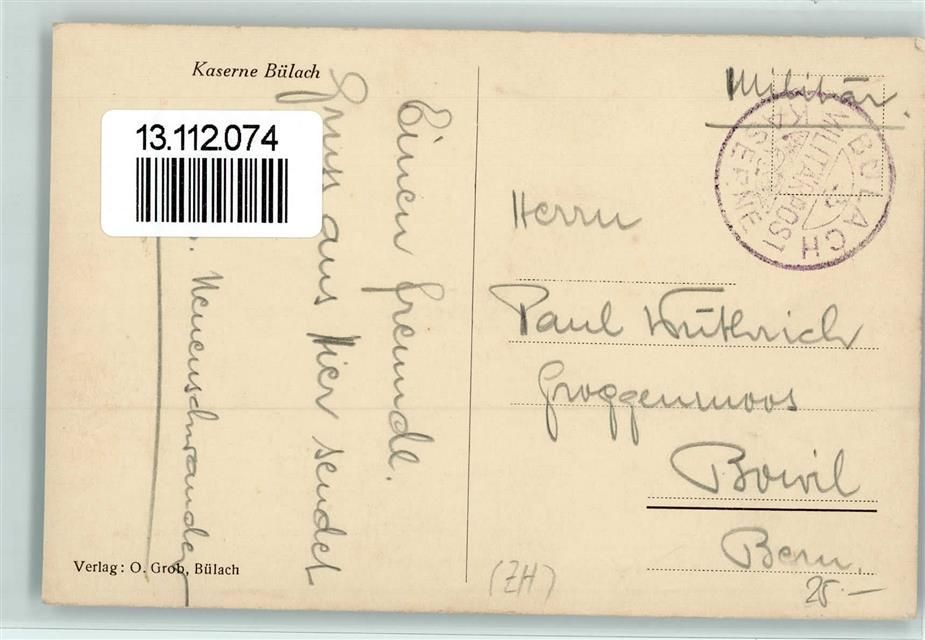 Kaserne Bülach
13.112.074
Einen freundl.
Gruss aus Hier sendet
Neuenschwander
Verlag: O. Grob, Bülach
Militär.
BÜLACH
MILITÄRPOST
KASERNE
Herrn
Paul Wüthrich
Groggenmoos
Bowil
Bern.
(ZH)
25.—